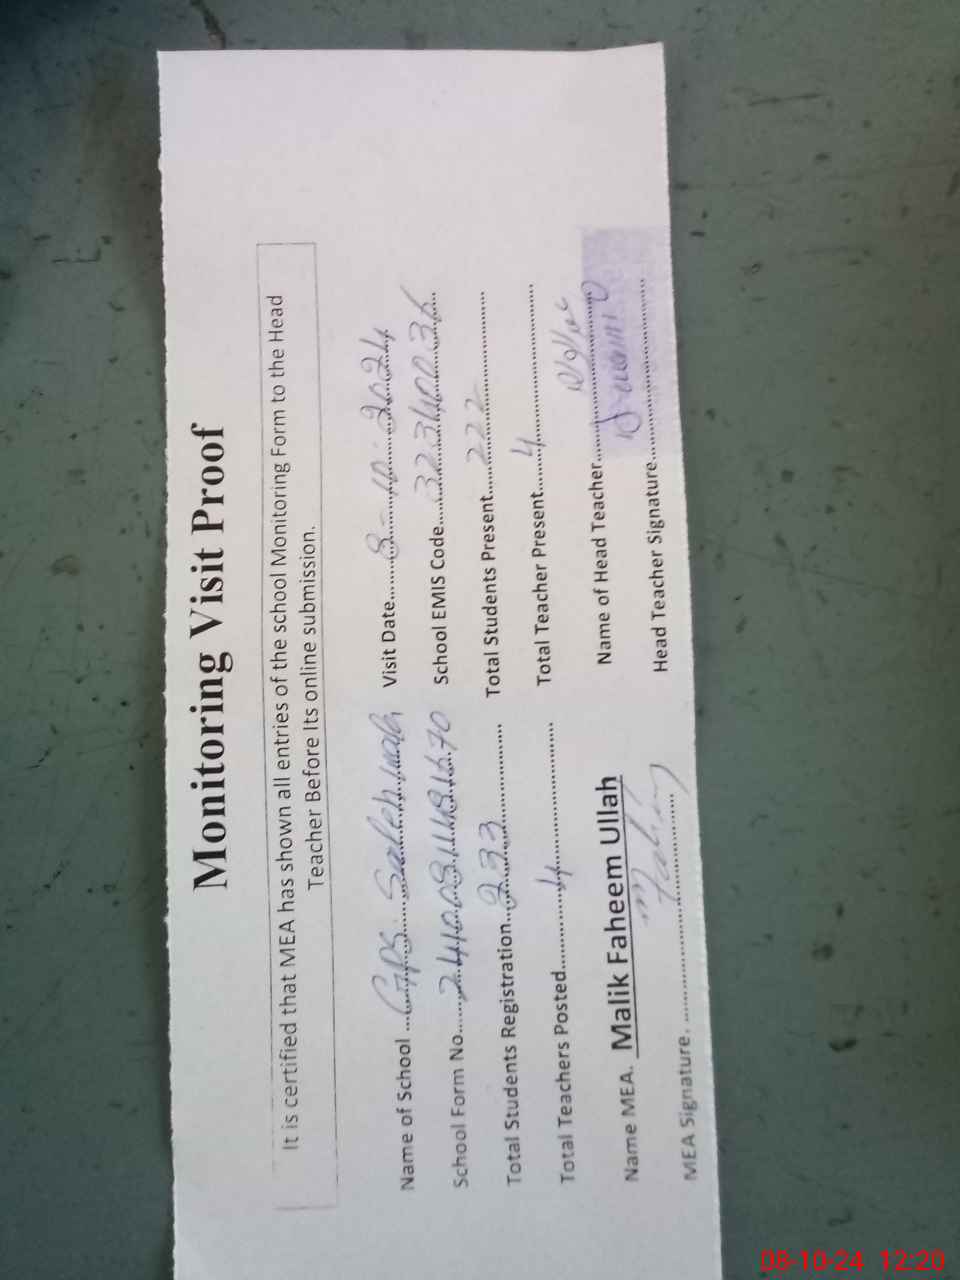 Monitoring Visit Proof
It is certified that MEA has shown all entries of the school Monitoring Form to the Head
Teacher Before Its online submission.
Name of School ...GPS. Saleh wah Visit Date......8-10-2024
School Form No....... School EMIS Code....32340036
Total Students Registration..233 Total Students Present....222
Total Teachers Posted............4 Total Teacher Present......4
Name MEA. Malik Faheem Ullah Name of Head Teacher.....
MEA Signature. Head Teacher Signature.....
08-10-24 12:20